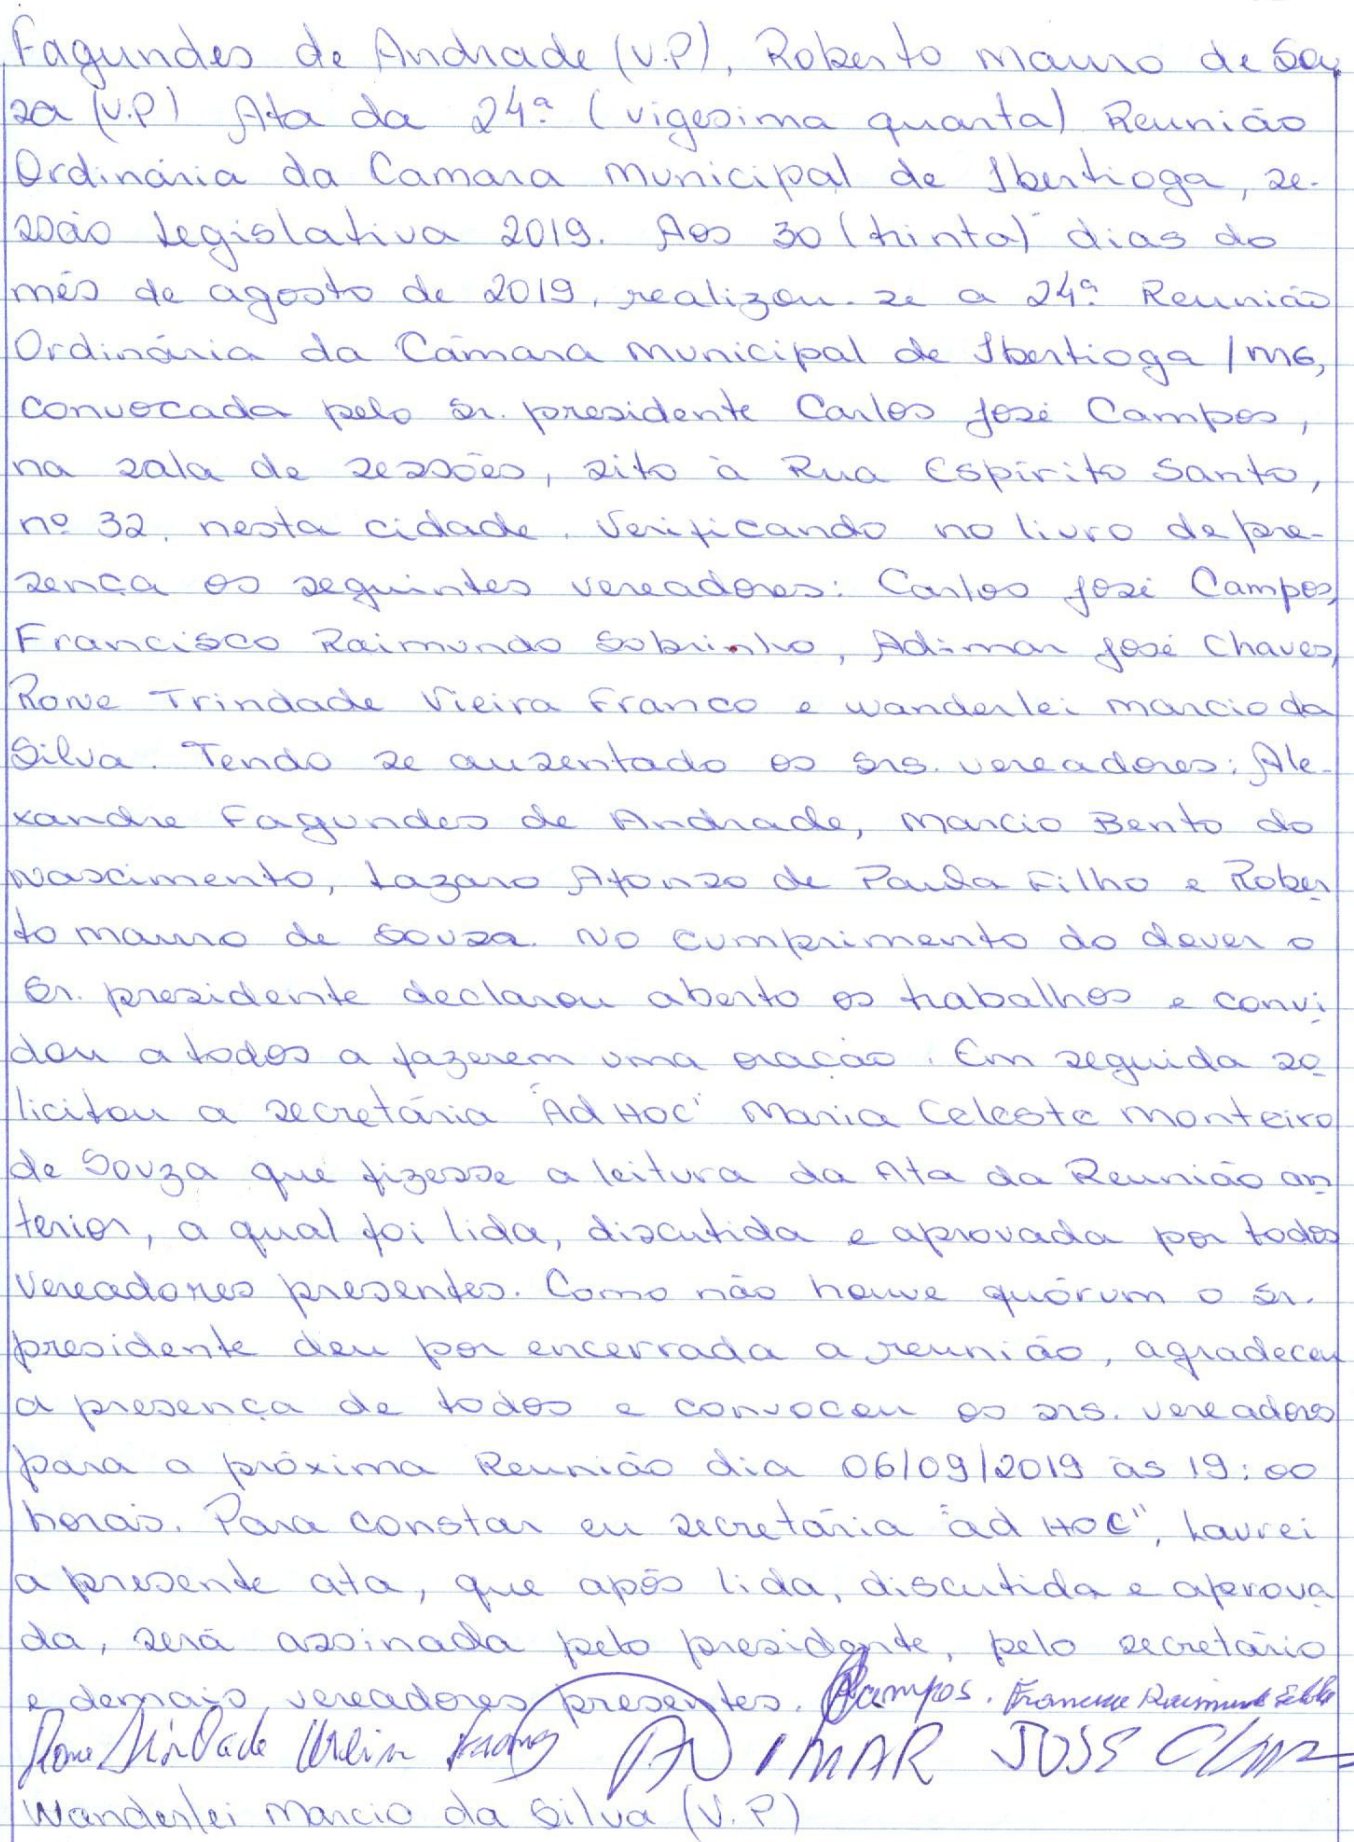 Fagundes de Andrade (V.P), Roberto Mauro de Sou
za (V.P) Ata da 24ª (vigesima quarta) Reunião
Ordinária da Camara Municipal de Ibertioga, se-
ssão Legislativa 2019. Aos 30 (trinta) dias do
mês de agosto de 2019, realizou-se a 24ª Reunião
Ordinária da Câmara Municipal de Ibertioga / MG,
convocada pelo Sr. presidente Carlos José Campos,
na sala de sessões, sito à Rua Espírito Santo,
nº 32, nesta cidade. Verificando no livro de pre-
sença os seguintes vereadores: Carlos José Campos,
Francisco Raimundo Sobrinho, Adimar José Chaves,
Rone Trindade Vieira Franco e Wanderlei Marcio da
Silva. Tendo se ausentado os srs. vereadores: Ale-
xandre Fagundes de Andrade, Marcio Bento do
Nascimento, Lazaro Afonso de Paula Filho e Rober
to Mauro de Souza. No cumprimento do dever o
Sr. presidente declarou aberto os trabalhos e convi
dou a todos a fazerem uma oração. Em seguida so
licitou a secretária "Ad Hoc" Maria Celeste Monteiro
de Souza que fizesse a leitura da Ata da Reunião an
terior, a qual foi lida, discutida e aprovada por todos
vereadores presentes. Como não houve quórum o Sr.
presidente deu por encerrada a reunião, agradeceu
a presença de todos e convocou os srs. vereadores
para a próxima Reunião dia 06/09/2019 às 19:00
horas. Para constar eu secretária "ad Hoc", Lavrei
a presente ata, que após lida, discutida e aprova
da, será assinada pelo presidente, pelo secretário
e demais vereadores presentes. CCampos. Francisco Raimundo Sobrinho
Rone Trindade Vieira Franco ADIMAR JOSE Chaves
Wanderlei Marcio da Silva (V.P)